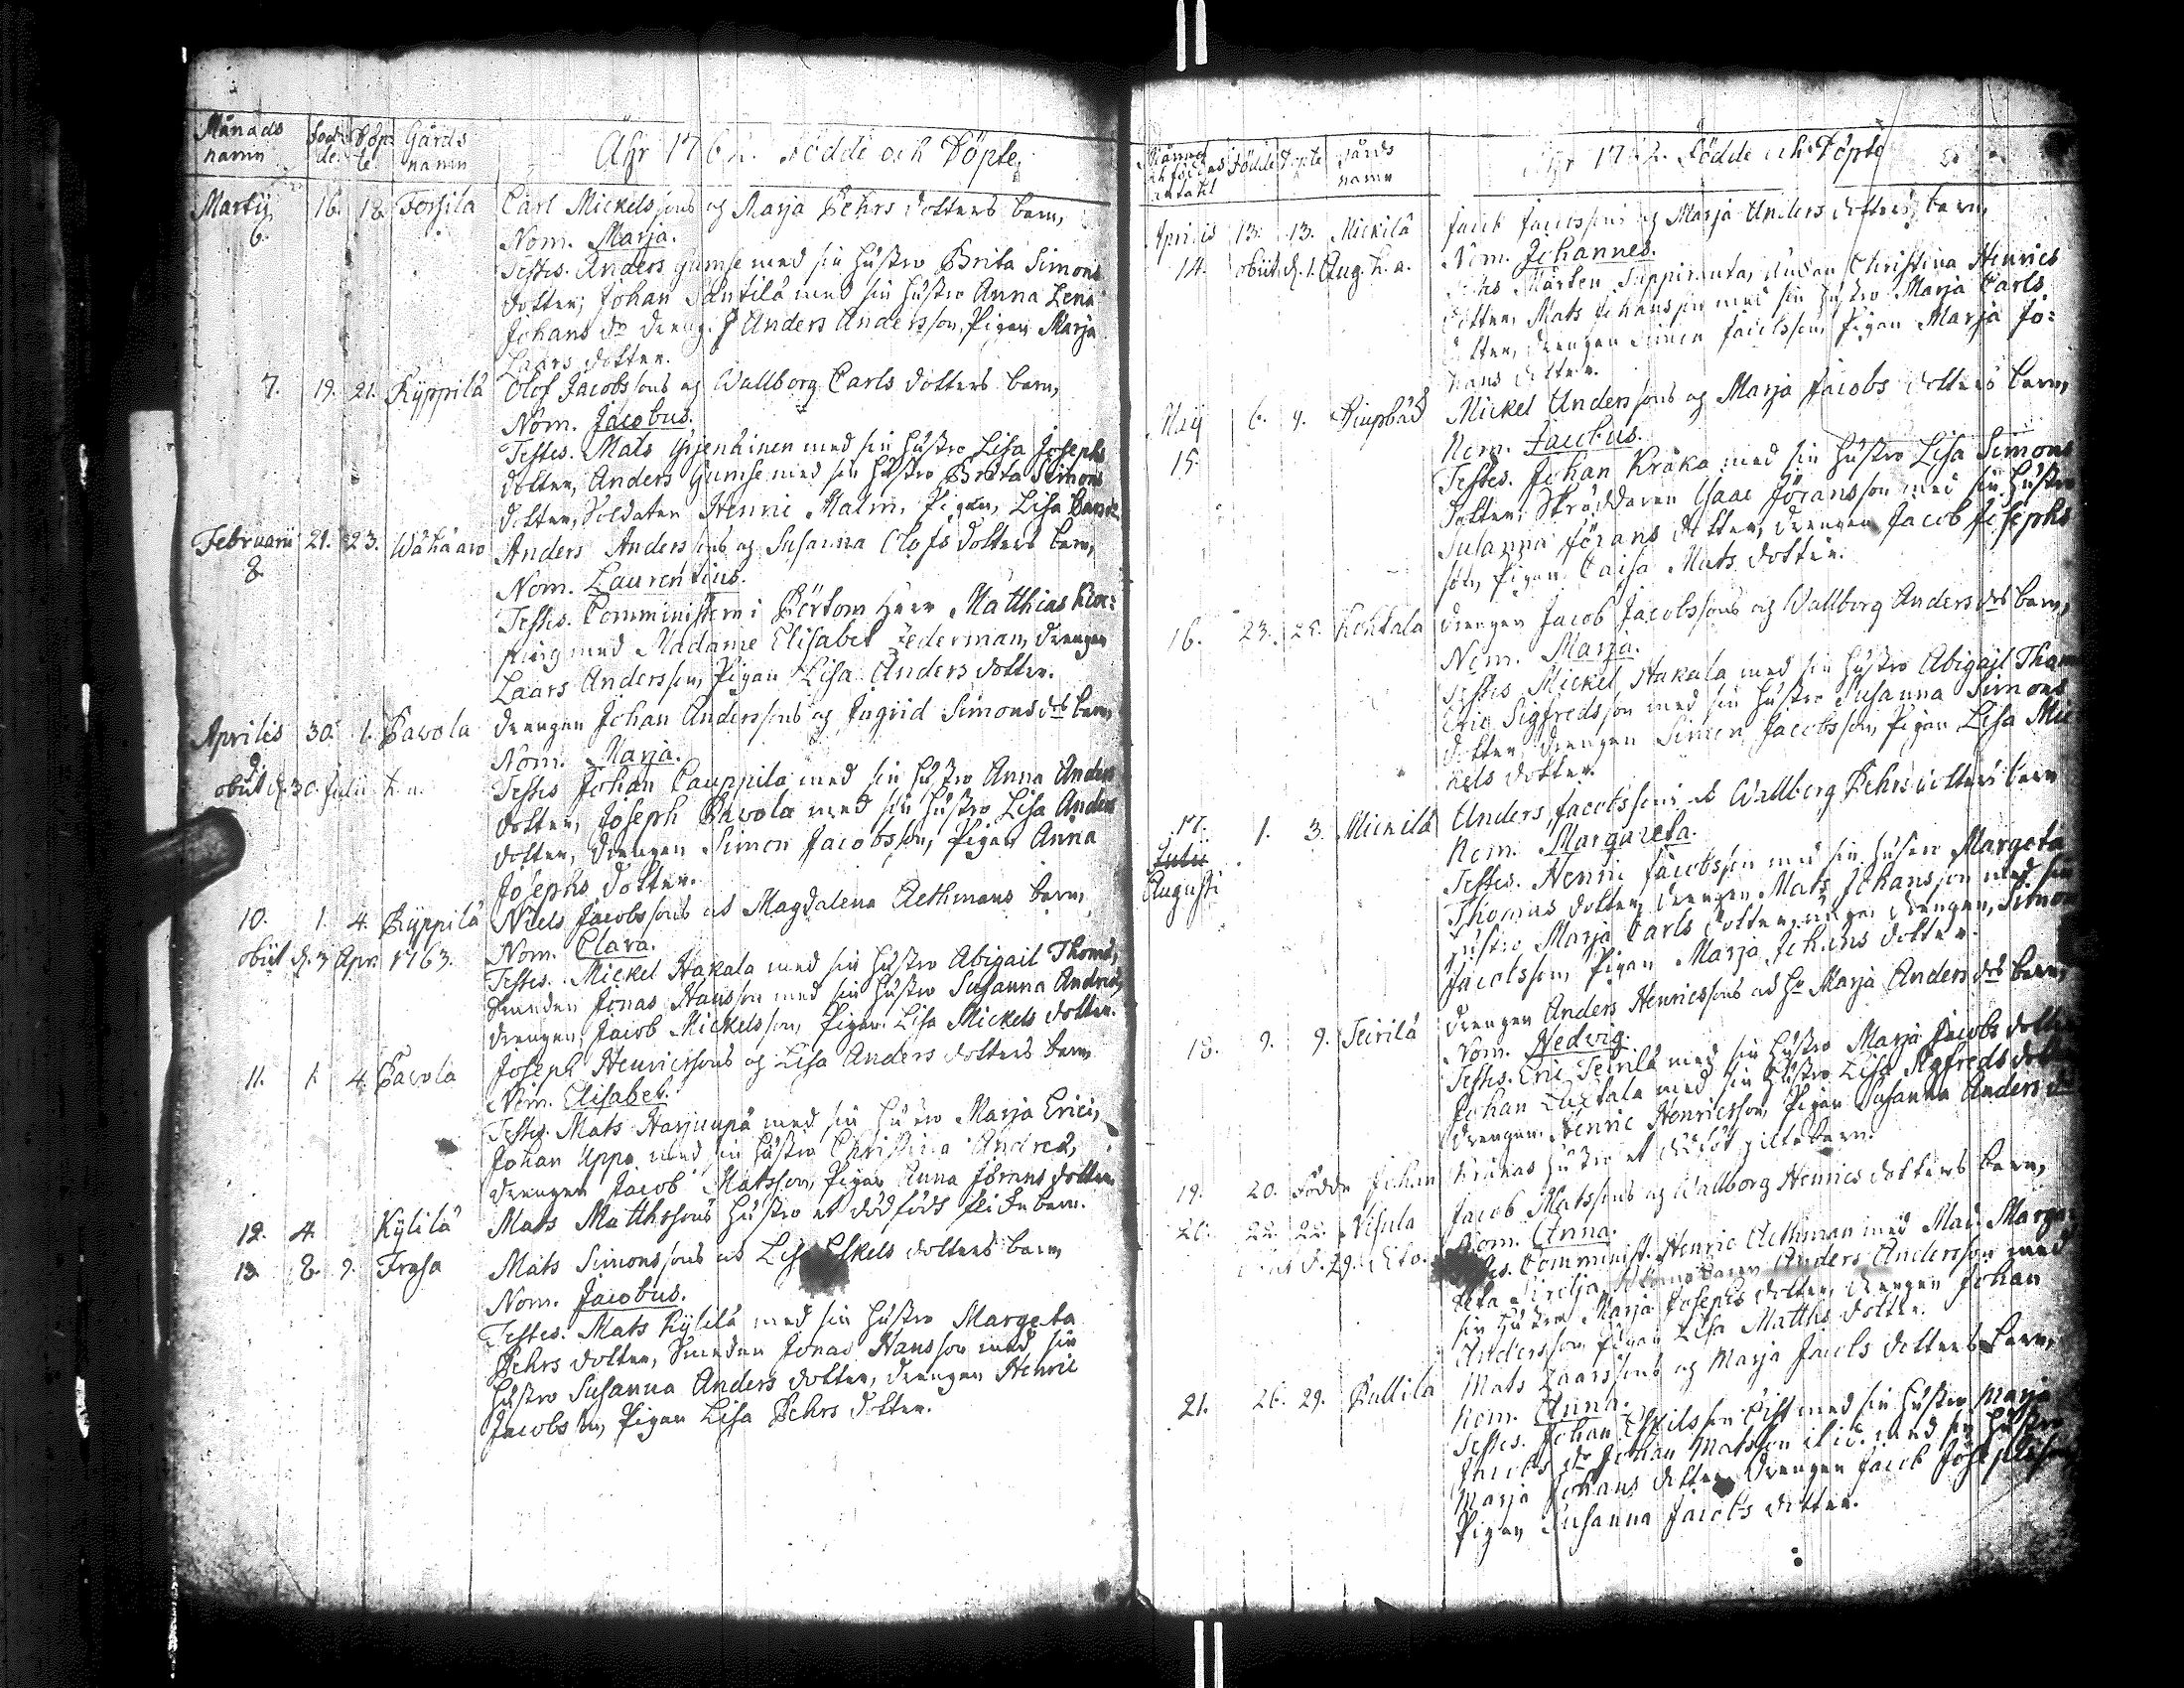 Månads namn Föd- de. Döp- te. Gårds namn Åhr 176 Födde och Döpte
Martij 16. 18. Torsila Carl Mickelssons og Marja Pehrs dotters barn,
6. Nom. Marja.
Testes. Anders Gumse med sin hustro Brita Simons
dotter; Johan Säntilä med sin hustro Anna Lena
Johans dr dreng. Anders Andersson, Pigan Marja
Laars dotter.
7. 19. 21. Ryppilä Olof Jacobssons og Wallborg Carls dotters barn,
Nom. Jacobus.
Testes. Mats med sin hustro Lisa Josephs
dotter, Anders Gumse med sin hustro Brita Simons
dotter, Soldaten Henric Malm, Pigan, Lisa
Februarii 21. 23. Wähäaro Anders Anderssons og Susanna Olofs dotters barn,
8. Nom. Laurentius.
Testes. Comministern i Pörtom Herr Matthias
med Madame Elisabet Zederman, drengen
Laars Andersson, Pigan Lisa Anders dotter.
Aprilis 30. 1. Pavola drengen Johan Anderssons og Ingrid Simons drs barn,
9. Nom. Marja.
obiit d. 30. Julii h. a. Testes Johan Cauppila med sin hustro Anna Anders
dotter, Joseph Pavola med sin hustro Lisa Anders
dotter, drengen Simon Jacobsson, Pigan Anna
Josephs dotter.
10. 1. 4. Ryppilä Niels Jacobssons ds Magdalena Aethmans barn,
obiit d. 3 Apr. 1763. Nom. Clara.
Testes. Mickel Hakala med sin hustro Abigail Thoms,
Smeden Jonas Hansson med sin hustro Susanna Andreæ,
drengen, Jacob Mickelsson, Pigan Lisa Mickels dotter.
11. 1. 4. Pavola Joseph Henricssons og Lisa Anders dotters barn
Nom. Elisabet.
Testes. Mats Harjunpä med sin hustro Marja Erici,
Johan Uppa med sin hustro Christina Andreæ,
drengen Jacob Matsson, Pigan Anna Jörans dotter.
12. 4. Kylilä Mats Matthssons hustro et dödfödt flickebarn.
13. 8. 9. Frasa Mats Simonssons ds Lisa Eskels dotters barn
Nom. Jacobus.
Testes. Mats Kylilä med sin hustro Margeta
Pehrs dotter, Smeden Jonas Hansson med sin
hustro Susanna Anders dotter, drengen Henric
Jacobsson, Pigan Lisa Pehrs dotter.
Födde Döpte Gårds namn Födde och Döpte
Aprilis 13. 13. Mickilä Jacob Jacobssons og Marja Anders dotters barn,
14. obiit d. 1. Aug. h. a. Nom. Johannes.
Mårten Christina Henrics
dotter, Mats Johansson med sin hustro Marja Carls
dotter, drengen Simon Jacobsson, Pigan Marja Jo:
hans dotter.
Maij 6. 9. Mickel Anderssons og Marja Jacobs dotters barn,
15. Nom. Jacobus.
Testes. Johan Kråka med sin hustro Lisa Simons
dotter, Skräddaren Isaac Jöransson med sin hustro
Susanna Jörans dotter, drengen Jacob Josephs
son, Pigan Caisa Mats dotter.
16. 23. 25. Kohtala drengen Jacob Jacobssons og Wallborg Anders drs barn,
Nom. Marja.
Testes Mickel Hakala med sin hustro Abigail Thom
Eric Sigfredsson med sin hustro Susanna Simons
dotter, drengen Simon Jacobsson, Pigan Lisa Mic
kels dotter.
17. 1. 3. Mickilä Anders Jacobssons ds Wallborg Pehrs dotters barn
Julii Nom. Margareta.
Augusti Testes. Henric Jacobsson med sin hustro Margeta
Thomas dotter, drengen Mats Johansson med sin
hustro Marja Carls dotter, drengen, Simon
Jacobsson, Pigan Marja Johans dotter.
18. 9. 9. Teirilä drengen Anders Henricssons ds hr Marja Anders drs barn,
Nom. Hedvig.
Testes. Eric Teirilä med sin hustro Marja Jacobs dotter
Johan Luxtala med sin hustro Lisa Sigfreds dotter
drengen. Henric Henricsson, Pigan Susanna Anders dr
19. 20. Födde Johan Kråkas hustro et barn.
20. 22. 22. Nisula Jacob Matssons og Wallborg Henrics dotters barn,
d. 29. dito. Nom. Anna.
Testes. Comminist. Henric Aethman med Mad. Marga:
reta Anders Andersson med
sin hustro Marja Josephs dotter, drengen Johan
Andersson, Pigan Lisa Matths dotter.
21. 26. 29. Pullila Mats Laarssons og Marja Jacobs dotters barn,
Nom. Anna.
Testes. Johan Eskilsson med sin hustro Marja
Jacobs dr Johan Matsson med sin hustro
Marja Johans dotter, drengen Jacob Josephsson
Pigan Susanna Jacobs dotter.